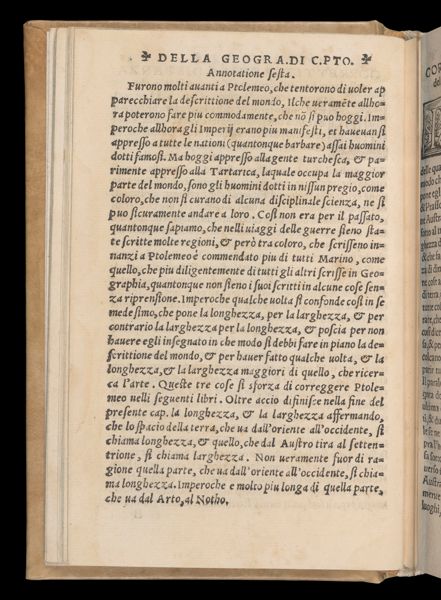 DELLA GEOGRA. DI C. PTO.
Annotatione sesta.
Furono molti auanti a Ptolemeo, che tentorono di uoler ap
parecchiare la descrittione del mondo, Ilche ueramẽte allho-
ra poterono fare piu commodamente, che nõ si puo hoggi. Im-
peroche allhora gli Imperij erano piu manifesti, et haueuan si
appresso a tutte le nationi (quantonque barbare) assai huomini
dotti famosi. Ma hoggi appresso alla gente turchesca, & pa-
rimente appresso alla Tartarica, laquale occupa la maggior
parte del mondo, sono gli huomini dotti in nissun pregio, come
coloro, che non si curano di alcuna disciplinale scienza, ne si
puo sicuramente andare a loro. Cosi non era per il passato,
quantonque sapiamo, che nelli uiaggi delle guerre sieno sta-
te scritte molte regioni, & però tra coloro, che scrisseno in-
nanzi a Ptolemeo è commendato piu di tutti Marino, come
quello, che piu diligentemente di tutti gli altri scrisse in Geo-
graphia, quantonque non sieno i suoi scritti in alcune cose sen-
za riprensione. Imperoche qualche uolta si confonde cosi in se
medesimo, che pone la longhezza, per la larghezza, & per
contrario la larghezza per la longhezza, & poscia per non
hauere egli insegnato in che modo si debbi fare in piano la de-
scrittione del mondo, & per hauer fatto qualche uolta, & la
longhezza, & la larghezza maggiori di quello, che ricer-
ca l'arte. Queste tre cose si sforza di correggere Ptole-
meo nelli seguenti libri. Oltre accio difinisce nella fine del
presente cap. la longhezza, & la larghezza affermando,
che lo spacio della terra, che ua dall'oriente all'occidente, si
chiama longhezza, & quello, che dal Austro tira al setten-
trione, si chiama larghezza. Non ueramente fuor di ra-
gione quella parte, che ua dall'oriente all'occidente, si chia-
ma longhezza. Imperoche e molto piu longa di quella parte,
che ua dal Arto, al Notho.